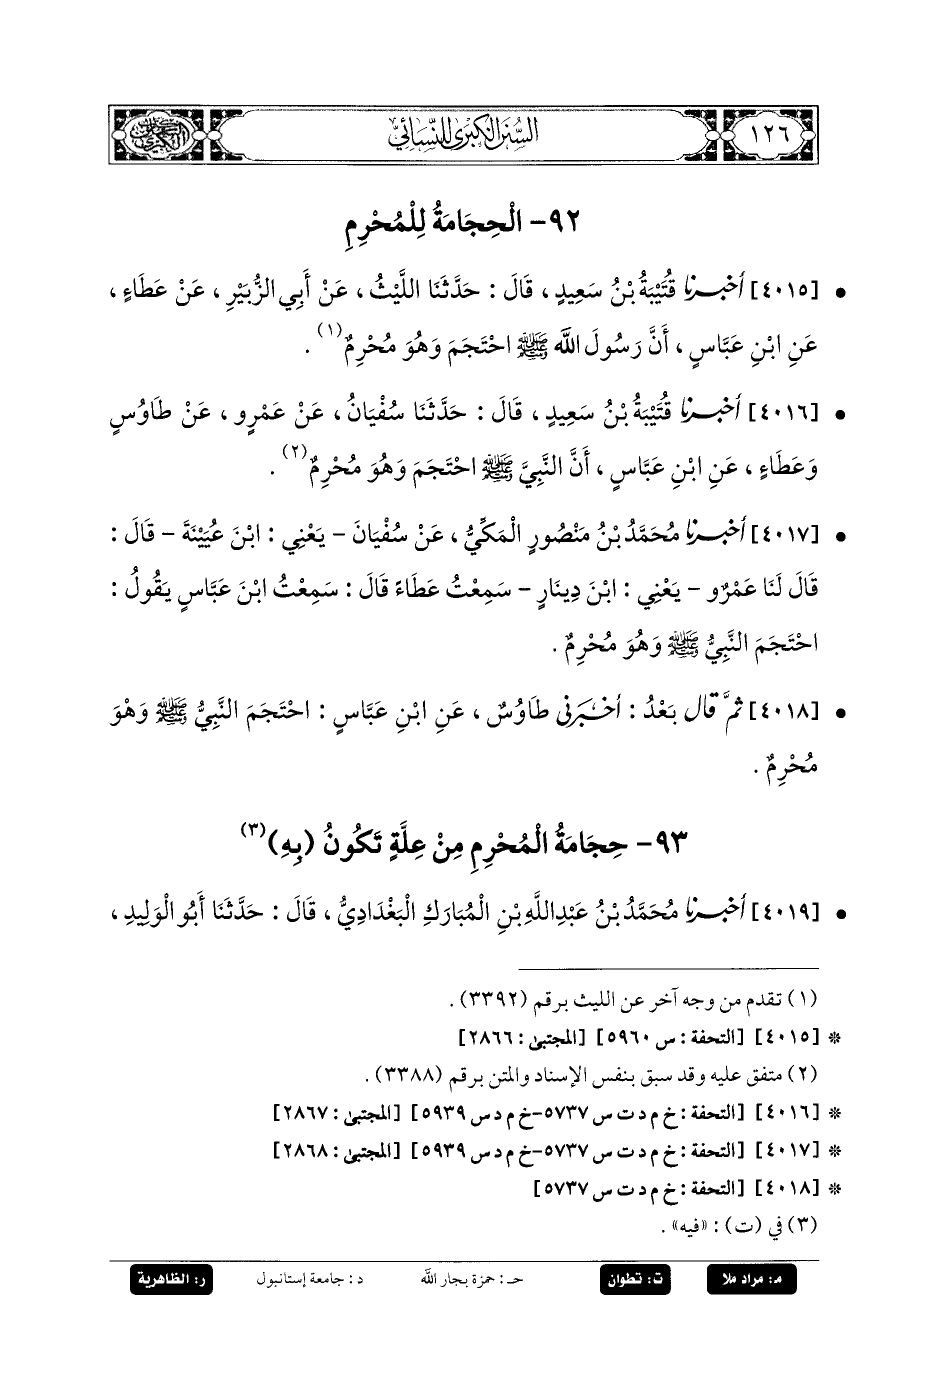 ١٢٦
السُّنَنُ الْكُبْرَىٰ لِلنَّسَائِيِّ
٩٢- الْحِجَامَةُ لِلْمُحْرِمِ
• [٤٠١٥] أَخْبَرَنَا قُتَيْبَةُ بْنُ سَعِيدٍ ، قَالَ : حَدَّثَنَا اللَّيْثُ ، عَنْ أَبِي الزُّبَيْرِ ، عَنْ عَطَاءٍ ،
عَنِ ابْنِ عَبَّاسٍ ، أَنَّ رَسُولَ اللَّه ﷺ احْتَجَمَ وَهُوَ مُحْرِمٌ(١) .
• [٤٠١٦] أَخْبَرَنَا قُتَيْبَةُ بْنُ سَعِيدٍ ، قَالَ : حَدَّثَنَا سُفْيَانُ ، عَنْ عَمْرٍو ، عَنْ طَاوُسٍ
وَعَطَاءٍ ، عَنِ ابْنِ عَبَّاسٍ ، أَنَّ النَّبِيَّ ﷺ احْتَجَمَ وَهُوَ مُحْرِمٌ(٢) .
• [٤٠١٧] أَخْبَرَنَا مُحَمَّدُ بْنُ مَنْصُورٍ الْمَكِّيُّ ، عَنْ سُفْيَانَ - يَعْنِي : ابْنَ عُيَيْنَةَ - قَالَ :
قَالَ لَنَا عَمْرٌو - يَعْنِي : ابْنَ دِينَارٍ - سَمِعْتُ عَطَاءً قَالَ : سَمِعْتُ ابْنَ عَبَّاسٍ يَقُولُ :
احْتَجَمَ النَّبِيُّ ﷺ وَهُوَ مُحْرِمٌ .
• [٤٠١٨] ثُمَّ قَالَ بَعْدُ : أَخْبَرَنِي طَاوُسٌ ، عَنِ ابْنِ عَبَّاسٍ : احْتَجَمَ النَّبِيُّ ﷺ وَهْوَ
مُحْرِمٌ .
٩٣- حِجَامَةُ الْمُحْرِمِ مِنْ عِلَّةٍ تَكُونُ (بِهِ)(٣)
• [٤٠١٩] أَخْبَرَنَا مُحَمَّدُ بْنُ عَبْدِاللَّهِ بْنِ الْمُبَارَكِ الْبَغْدَادِيُّ ، قَالَ : حَدَّثَنَا أَبُو الْوَلِيدِ ،
(١) تقدم من وجه آخر عن الليث برقم (٣٣٩٢) .
* [٤٠١٥] [التحفة : س ٥٩٦٠] [المجتبى : ٢٨٦٦]
(٢) متفق عليه وقد سبق بنفس الإسناد والمتن برقم (٣٣٨٨) .
* [٤٠١٦] [التحفة : خ م د ت س ٥٧٣٧-خ م د س ٥٩٣٩] [المجتبى : ٢٨٦٧]
* [٤٠١٧] [التحفة : خ م د ت س ٥٧٣٧-خ م د س ٥٩٣٩] [المجتبى : ٢٨٦٨]
* [٤٠١٨] [التحفة : خ م د ت س ٥٧٣٧]
(٣) في (ت) : «فيه» .
مـ: مراد ملا ت: تطوان حـ: حمزة بجار اللَّه د: جامعة إستانبول ر: الظاهرية